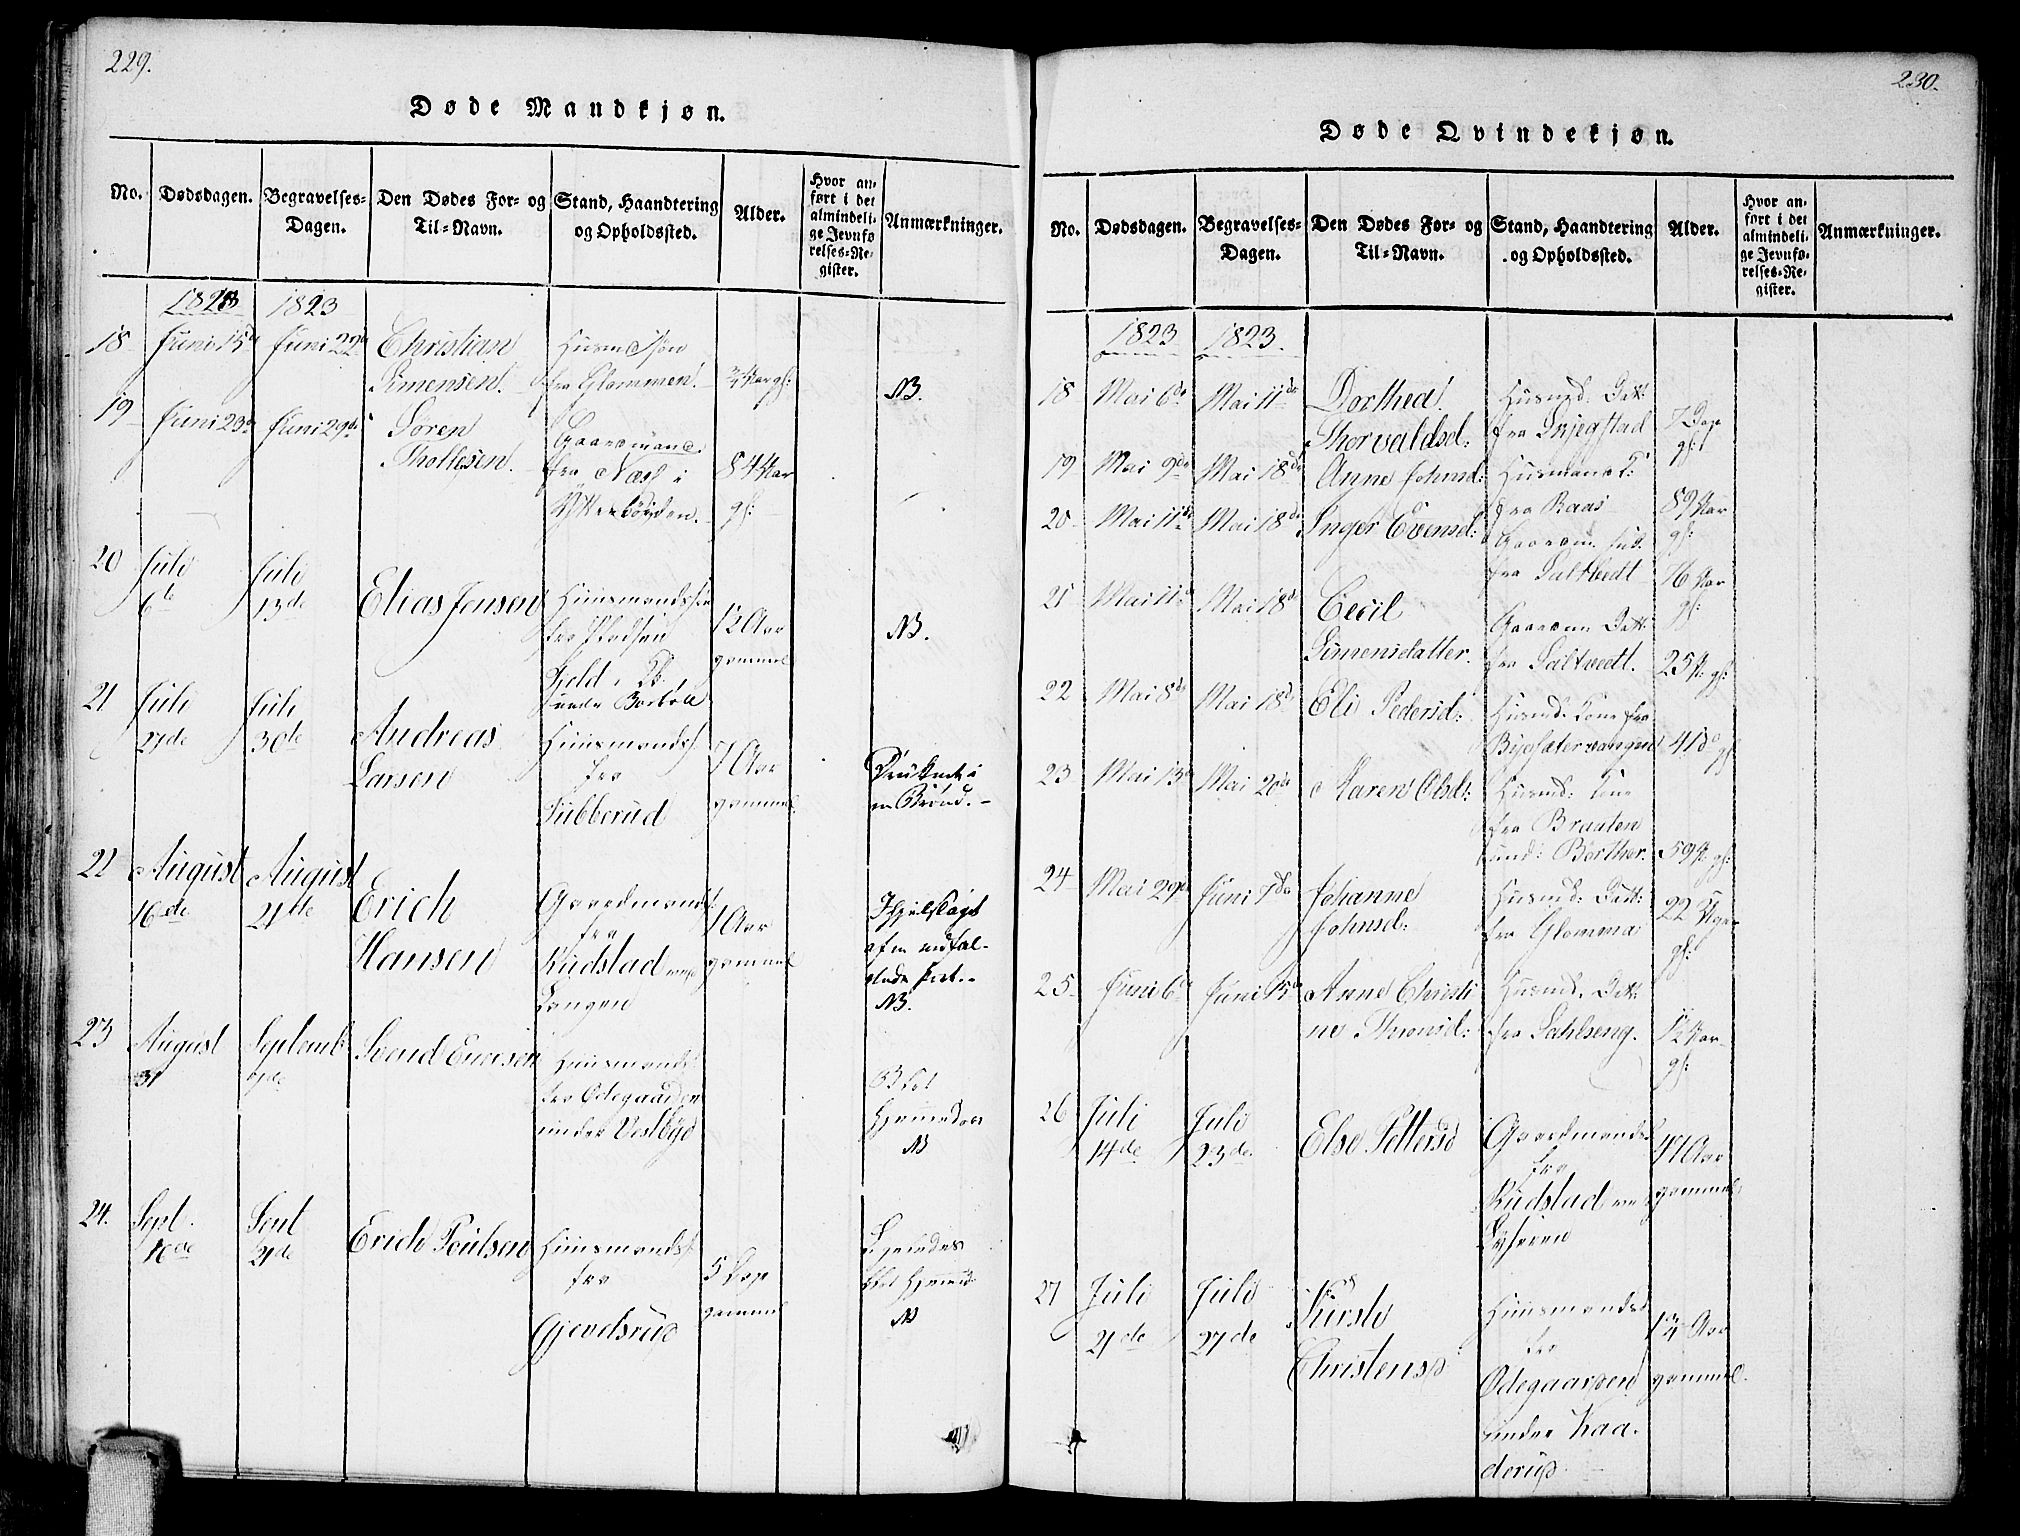 229.
Døde Mandkjøn.
No.
Dødsdagen.
Begravelses-
Dagen.
Den Dødes For- og
Til-Navn.
Stand, Haandtering
og Opholdssted.
Alder.
Hvor an-
ført i det
almindeli-
ge Jevnfø
relses-Re-
gister.
Anmærkninger.
1823
1823
18
Juni 15de
Juni 22de
Christian
Simensen.
Husmds Søn
fra Glommen.
3/4 Aar gl:
NB.
19
Juni 23de
Juni 29de
Søren
Thollesen.
Gaardmand
fra Næss i
84 Aar
gl:
20
Juli
6te
Juli
13de
Elias Jensen
Huusmandssøn
fra
12 Aar
gammel
NB.
under
21
Juli
27de
Juli
30te
Andreas
Larsen
Huusmandss.
fra
Tubberud
7 Aar
gammel
Druknet i
en Brønd.-
22
August
16de
August
21de
Erich
Hansen
Gaardmands
fra
Rudstad
Langen
1 Aar
gammel
Ihjelslaget
af en nedfal-
NB.
23
August
31
Septemb
7de
Svend Evensen
Huusmands
fra Ødegaarden
under Vestbye
Hjemmedøbt
NB
24.
Sept.
16de
Sept
21de
Erich Poulsen
Huusmandss.
fra
Gjevelsrud
5 Dage
gammel
NB
230.
Døde Qvindekjøn.
No.
Dødsdagen.
Begravelses-
Dagen.
Den Dødes For- og
Til-Navn.
Stand, Haandtering
og Opholdssted.
Alder.
Hvor an-
ført i det
almindeli-
ge Jevnfø-
relses-Re-
gister.
Anmærkninger.
1823
1823.
18
Mai 6de
Mai 11de
Dorthea
Thorvaldsd:
Husmd: Datt:
fra Skjegstad
7 Dage
gl:
19
Mai 9de
Mai 18de
Anne Johnsd:
Husmands K:
fra Raas
89 Aar
gl:
20
Mai 11de
Mai 18de
Inger Evensd:
fra Saltvedt
76 Aar
gl:
21
Mai 11de
Mai 18de
Cecil
Simensdatter.
Gaardm: Datt:
fra Saltvedt.
25 A: gl:
22
Mai 8de
Mai 18de
Eli Pedersd:
Husmd: Kone fra
Byesætervangen
41 do gl:
23
Mai 13de
Mai 20de
Karen Olsd:
Husmd: Kone
fra Braaten
und: Berther.
59 A: gl:
24
Mai 29de
Juni 1de
Johanne
Johnsd:
Husmd: Datt:
fra Glomma
22 Uger
gl:
25
Juni 6de
Juni 15de
Anne Christi
ne Thronsd:
Husmd: Datt:
fra Sahlseng.
1½ Aar
gl:
26
Juli
14de
Juli
23de
Else Pettersd
Gaardmands
fra
Rudstad
Lyseren
47 Aar
gammel
27
Juli
21de
Juli
27de
Kirsti
Christensd
Huusmands
fra
Ødegaarden
under Kaa-
derud
13/4 Aar
gammel.